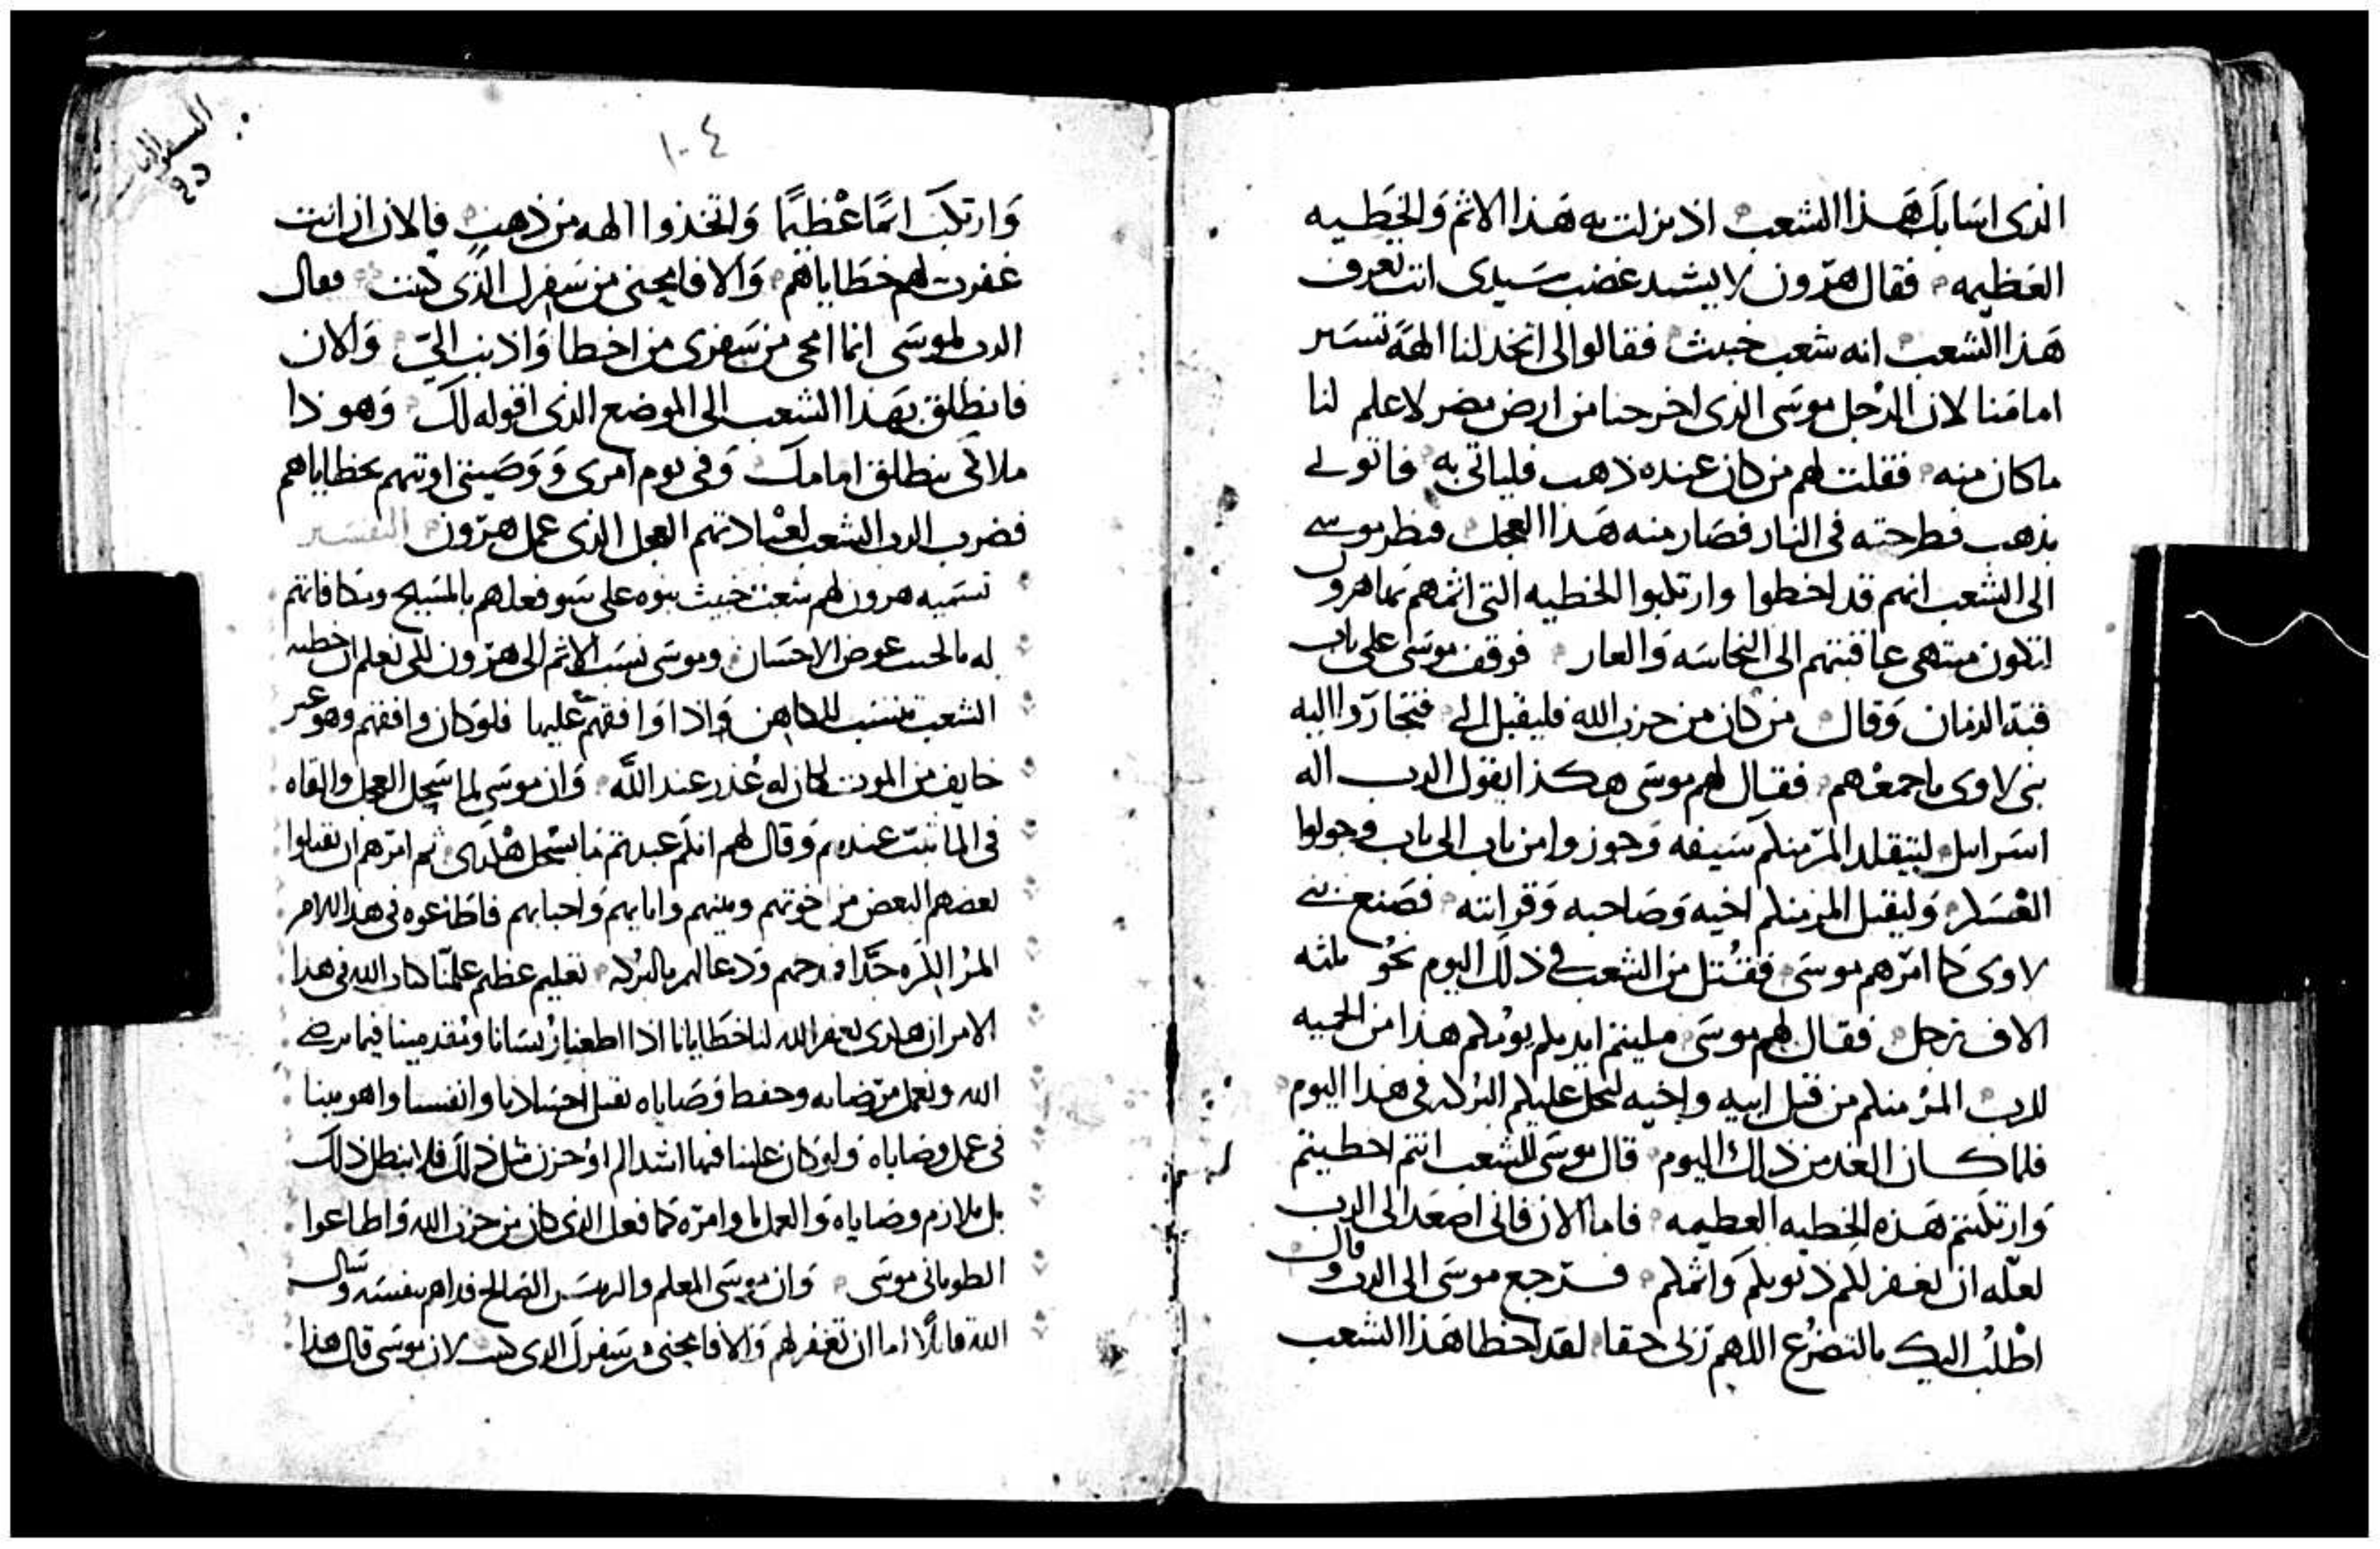 الذى اسَا بكَ هَذا الشعب اذ نزلت به هَذا الاثم وَالخطيه
العَظيمه فقال هرون لا يشتد غضب سَيدى انت تعرف
هَذا الشعب انه شعب خبيث فقالوا لى اتخذ لنا الهَة تسَير
امامَنا لان الرجل موسَى الذى اخرجنا من ارض مصر لا علم لنا
ما كان منه فقلت لهم من كان عنده ذهب فلياتى به فاتو لى
بذهب فطرحته فى النار فصَار منه هَذا العجل فنظر موسى
الى الشعب انهم قد اخطوا وارتكبوا الخطيه التى اثمهم بها هرون
لتكون منتهى عاقبتهم الى النجاسَه وَالعار فوقف موسَى على باب
قبة الزمان وَقال من كان من حزب الله فليقبل الى فتحازوا اليه
بنى لاوى باجمعهم فقال لهم موسَى هكذا يقول الرب اله
اسَراييل ليتقلد المرَ منكم سَيفه وَجوزوا من باب الى باب وجولوا
العسَكر وَليقتل المرَ منكم اخيه وَصَاحبه وَقرابته فصَنع بنى
لاوى كما امرَهم موسَى فقُتل من الشعب فى ذلك اليوم نحو ثلثه
الاف رَجل فقال لهم موسَى مليتم ايديكم يومكم هذا من الحميه
للرب المرُ منكم من قبل ابيه واخيه لتحل عليكم البركه فى هذا اليوم
فلما كان الغد من ذلك اليوم قال موسَى للشعب انتم اخطيتم
وَارتكبتم هَذه الخطيه العظيمه فاما الان فانى اصعَد الى الرب
لعله ان يغفر لكم ذنوبكم وَاثمكم فرَجع موسَى الى الرب وقال
اطلبُ اليك بالتضرُع اللهم رَبى حقا لقد اخطا هَذا الشعب
السفر الثانى
١٠٤
وَارتكب اثمًا عَظيمًا وَاتخذوا الهه من ذهب فالان ان انت
غفرت لهم خطاياهم وَالا فامحنى من سَفرك الذى كتبت فقال
الرب لموسَى انما امحى من سَفرى من اخطا وَاذنب الىَ وَالان
فانطلق بهَذا الشعب الى الموضع الذى اقوله لكَ وَهوذا
ملاكى ينطلق امامك وَفى يوم امرى وَوَصيتى اوتيهم بخطاياهم
فضرب الرب الشعب لعبادتهم العجل الذى عمل هرَون التفسَير
تسَميه هرون لهم شعب خبيث بنوه على سَو فعلهم بالمسَيح ومكافاتهم
له بالخبث عوض الاحسَان وموسَى نسَب الاثم الى هرَون لكى نعلم ان خطيه
الشعب تنسَب للكاهن وَاذا وَافقهم عليها فلو كان وافقهم وهو غير
خايف من الموت لكان له عُذر عند الله وَان موسَى لما سَحل العجل والقاه
فى الما ثبت عندهم وَقال لهم انكم عبدتم ما يسَحل هكذى ثم امرَهم ان يقتلوا
بعضهم البعض من اخوتهم وبنيهم وابايهم وَاحبابهم فاطاعوه فى هذا الامر
المرُ الكَره جَدا فمدحهم وَدعا لهم بالبركه تعليم عظيم علمَنا كتاب الله فى هذا
الامر ان هكذى يغفر الله لنا خطايانا اذا اطعنا رُيسَانا ومُقدمينا فيما يرضى
الله ونعمل مرَضاته وحفظ وَصَاياه نقتل اجسَادنا وانفسنا واهويتنا
فى عمل وصاياه وَلو كان علينا فيها اشد الم او حزن مثل ذلك فلا نبطل ذلك
بل نلازم وصاياه وَالعمل باوامرَه كما فعل الذى كان من حزب الله وَاطاعوا
الطوبانى موسَى وَان موسَى المعلم والريسَ الصَالح فداهم بنفسَه وسَال
الله قايلا اما ان تغفر لهم وَالا فامحنى من سَفرك الذى كتبت لان موسَى قال هذا